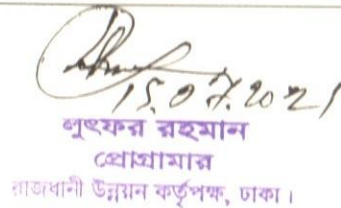 15.07.2021
লুৎফর রহমান
প্রোগ্রামার
রাজধানী উন্নয়ন কর্তৃপক্ষ, ঢাকা।